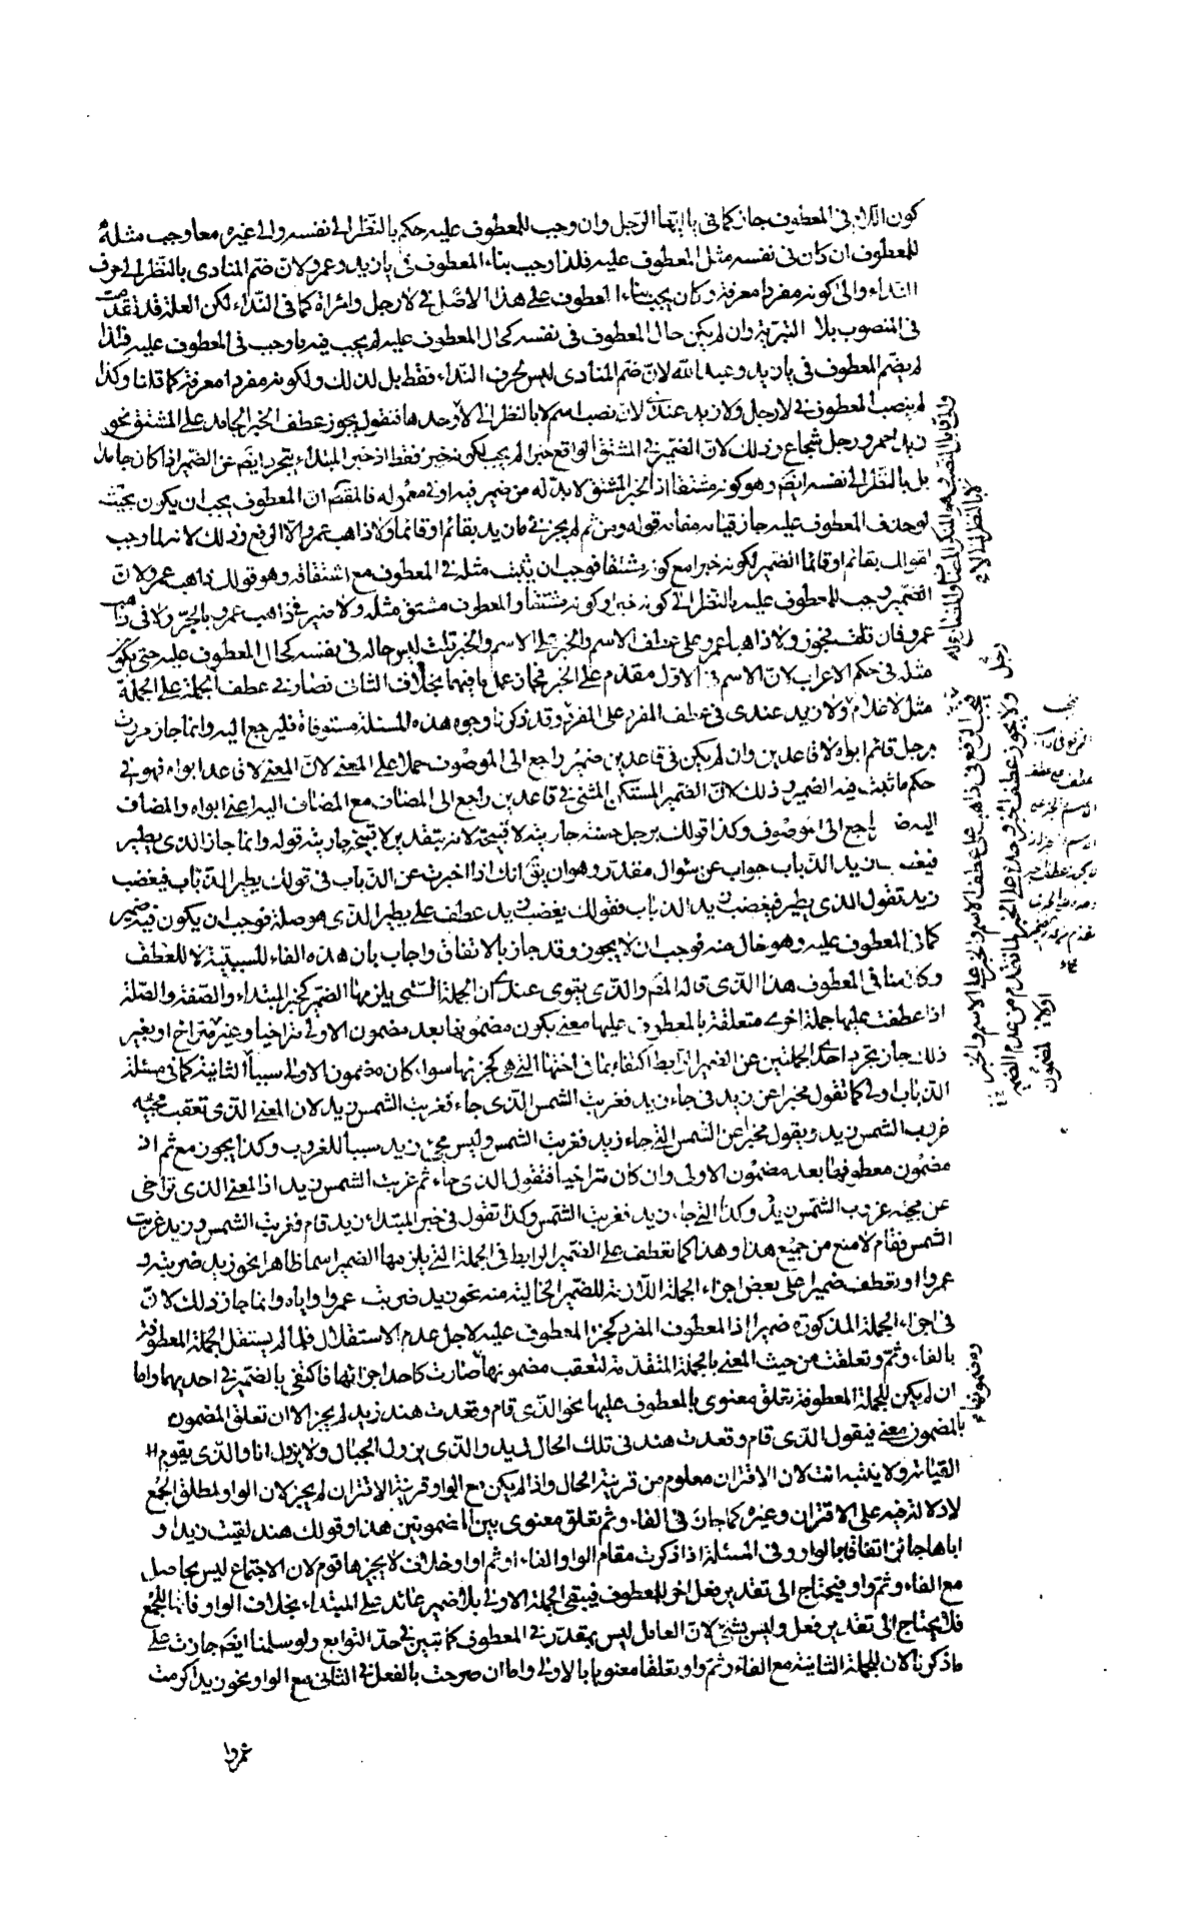 كون اللام في المعطوف جاز كما في يا ايها الرجل وان وجب للمعطوف عليه حكم بالنظر الى نفسه والى غيره معا وجب مثله
للمعطوف ان كان في نفسه مثل المعطوف عليه فلذا وجب بناء المعطوف في يا زيد وعمرو لان ضم المنادى بالنظر الى حرف
النداء والى كونه مفردا معرفة وكان يجب بناء المعطوف على هذا الاصل في لا رجل وامراة كما في النداء لكن العلة قد تقدمت
في المنصوب بلا التبرية وان لم يكن حال المعطوف في نفسه كحال المعطوف عليه لم يجب فيه ما وجب في المعطوف عليه فلذا
لم يضم المعطوف في يا زيد وعبد الله لان ضم المنادى ليس لحرف النداء فقط بل لذلك ولكونه مفردا معرفة كما قلنا وكذا
لم ينصب المعطوف في لا رجل ولا زيد عندك لان نصب اسم لا بالنظر الى لا وحدها فنقول يجوز عطف الخبر الجامد على المشتق نحو
زيد احمر ورجل شجاع وذلك لان الضمير في المشتق الواقع خبرا لم يجب لكونه خبر فقط اذ خبر المبتداء يتجرد ايضا عن الضمير اذا كان جامدا
بل بالنظر الى نفسه ايضا وهو كونه مشتقا اذ الخبر المشتق لا بد له من ضمير فيه او في معموله فالمقصم ان المعطوف يجب ان يكون بحيث
لو حذف المعطوف عليه جاز قيامه مقامه قوله ومن ثم لم يجز في ما زيد بقائم او قائما ولا ذاهب عمرو الا الرفع وذلك لانه لما وجب
لقولك بقائم او قائما الضمير لكونه خبرا مع كونه مشتقا فوجب ان يثبت مثله في المعطوف مع اشتقاقه وهو قولك ذاهب عمرو لان
الضمير وجب للمعطوف عليه بالنظر الى كونه خبرا وكونه مشتقا والمعطوف مشتق مثله ولا ضمير في ذاهب عمرو بالجر ولا في ذاهب
عمرو فان قلت فجوز ولا ذاهبا عمرو على عطف الاسم والخبر على الاسم والخبر قلت ليس حاله في نفسه كحال المعطوف عليه حتى يكون
مثله في حكم الاعراب لان الاسم في الاول مقدم على الخبر فجاز عمل ما فيهما بخلاف الثاني فصار في عطف الجملة على الجملة
مثل لا غلام ولا زيد عندى في عطف المفرد على المفرد وقد ذكرنا وجوه هذه المسئلة مستوفاة فليرجع اليه وانما جاز مررت
برجل قائم ابواه لا قاعدين وان لم يكن في قاعدين ضمير راجع الى الموصوف حملا على المعنى لان المعنى لا قاعد ابواه فهو في
حكم ما ثبت فيه الضمير وذلك لان الضمير المستكن المثنى في قاعدين راجع الى المضاف مع المضاف اليه اعني ابواه والمضاف
اليه راجع الى الموصوف وكذا قولك برجل حسنة جاريته لا قبيحة لانه بتقدير لا قبيحة جاريته قوله وانما جاز الذى يطير
فيغضب زيد الذباب جواب عن سوال مقدر وهو ان يق انك اذا اخبرت عن الذباب في قولك يطير الذباب فيغضب
زيد تقول الذى يطير فيغضب زيد الذباب فقولك يغضب زيد عطف على يطير الذى هو صلة فوجب ان يكون فيه ضمير
كما في المعطوف عليه وهو خال منه فوجب ان لا يجوز وقد جاز بالاتفاق واجاب بان هذه الفاء للسببية لا للعطف
وكلامنا في المعطوف هذا الذى قاله المص والذى يقوى عندى ان الجملة التي يلزمها الضمير كخبر المبتداء والصفة والصلة
اذا عطفت عليها جملة اخرى متعلقة بالمعطوف عليها معنى بكون مضمونها بعد مضمون الاولى متراخيا وغير متراخ او بغير
ذلك جاز تجرد احدى الجملتين عن الضمير الرابط اكتفاء بما في اختها التي هي كجزئها سواء كان مضمون الاولى سببا للثانية كما في مسئلة
الذباب او لا كما تقول مخبرا عن زيد في جاء زيد فغربت الشمس الذى جاء فغربت الشمس زيد لان المعنى الذى تعقب مجيئه
غروب الشمس زيد ويقول مخبرا عن الشمس التي جاء زيد فغربت الشمس وليس مجيء زيد سببا للغروب وكذا يجوز مع ثم اذ
مضمون معطوفها بعد مضمون الاولى وان كان متراخيا فنقول الذى جاء ثم غربت الشمس زيد اذ المعنى الذى تراخى
عن مجيئه غروب الشمس زيد وكذا التي جاء زيد فغربت الشمس وكذا تقول في خبر المبتداء زيد قام فغربت الشمس وزيد غربت
الشمس فقام لا منع من جميع هذا وهذا كما تعطف على الضمير الرابط في الجملة التي يلزمها الضمير اسما ظاهرا نحو زيد ضربته و
عمروا او تعطف ضميرا على بعض اجزاء الجملة اللازمة للضمير الخالية منه نحو زيد ضربت عمروا واياه وانما جاز ذلك لان
في اجزاء الجملة المذكورة ضميرا اذ المعطوف المفرد كجزء المعطوف عليه لاجل عدم الاستقلال فلما لم يستقل الجملة المعطوفة
بالفاء وثم وتعلقت من حيث المعنى بالجملة المتقدمة لتعقب مضمونها صارت كاحد اجزائها فاكتفى بالضمير في احديهما واما
ان لم يكن للجملة المعطوفة تعلق معنوى بالمعطوف عليها نحو الذى قام وقعدت هند زيد لم يجز الا ان تعلق المضمون
بالمضمون معنى فيقول الذى قام وقعدت هند في تلك الحال زيد والذى يزول الجبال ولا يزول انا والذى يقوم
القيامة ولا ينتبه انت لان الاقتران معلوم من قرينة الحال واذا لم يكن مع الواو قرينة الاقتران لم يجز لان الواو لمطلق الجمع
لا دلالة فيه على الاقتران وغيره كما جاز في الفاء وثم تعلق معنوى بين المضمونين هذا وقولك هند لقيت زيدا و
اباها جائز اتفاقا بالواو وفي المسئلة اذا ذكرت مقام الواو الفاء او ثم او او خلاف لا يجيزها قوم لان الاجتماع ليس بحاصل
مع الفاء وثم واو فيحتاج الى تقدير فعل اخر للمعطوف فيبقى الجملة الاولى بلا ضمير عائد على المبتداء بخلاف الواو فانها للجمع
فلا يحتاج الى تقدير فعل وليس بشيء لان العامل ليس بمقدر في المعطوف كما تبين في حد التوابع ولو سلمنا ايضا جازت على
ما ذكرنا لان للجملة الثانية مع الفاء وثم واو تعلقا معنويا بالاولى واما ان صرحت بالفعل في الثاني مع الواو نحو زيدا كرمت
عمروا
لا بالنظر الى لا
رجل ولا يجوز عطف الخبر وحده على الخبر لما تقدم من عدم الضمير
فيجب الرفع في ذاهب على عطف الاسم والخبر على الاسم والخبر
اولا لمضمون